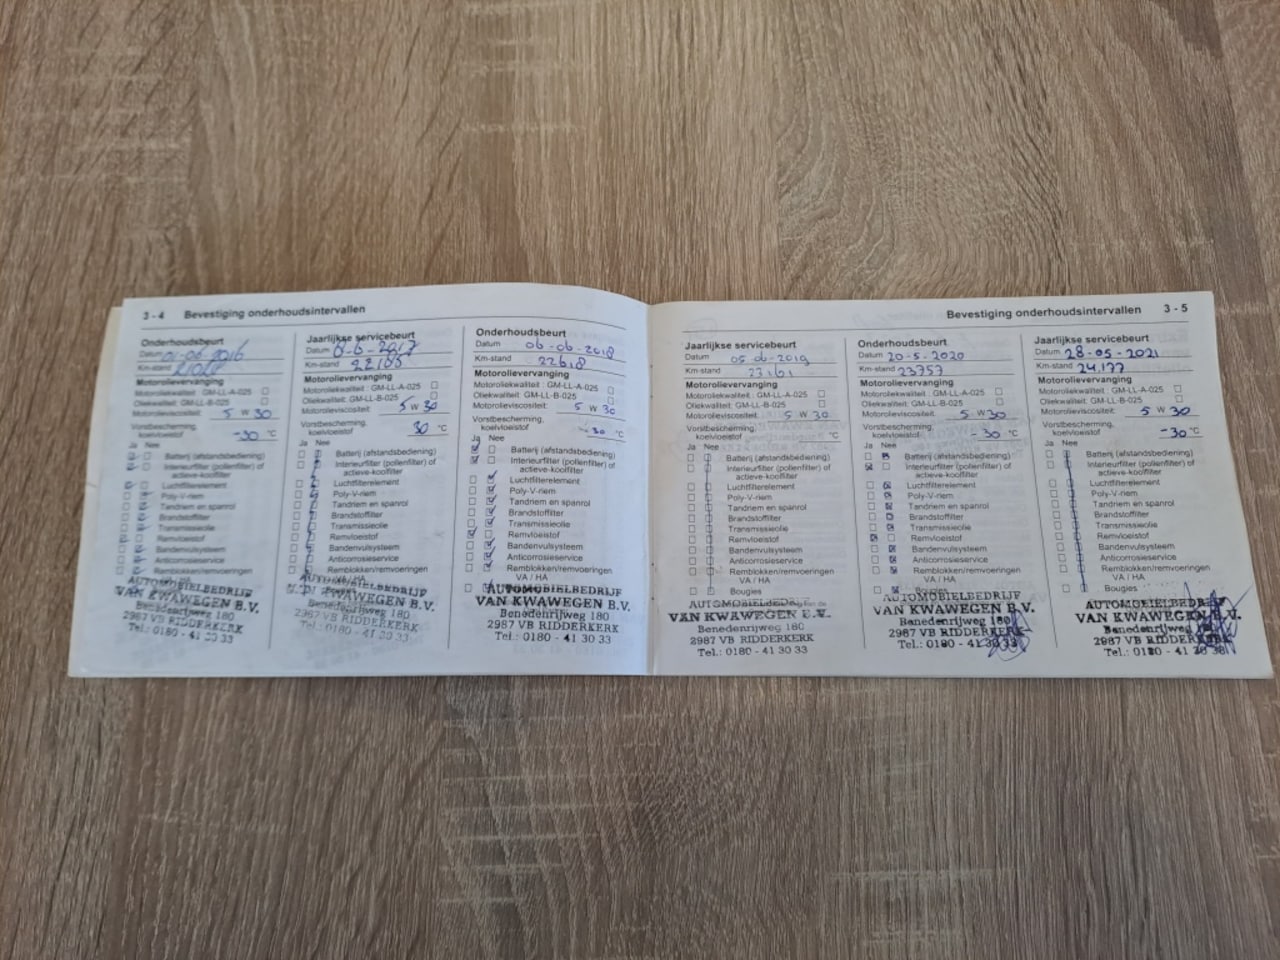 3 - 4 Bevestiging onderhoudsintervallen
Onderhoudsbeurt
Datum 01-06-2016
Km-stand 21028
Motorolievervanging
Motoroliekwaliteit: GM-LL-A-025
Oliekwaliteit: GM-LL-B-025
Motorolieviscositeit: 5 W 30
Vorstbescherming,
koelvloeistof -30 °C
Ja Nee
Batterij (afstandsbediening)
Interieurfilter (pollenfilter) of
actieve-koolfilter
Luchtfilterelement
Poly-V-riem
Tandriem en spanrol
Brandstoffilter
Transmissieolie
Remvloeistof
Bandenvulsysteem
Anticorrosieservice
Remblokken/remvoeringen
AUTOMOBIELBEDRIJF
VAN KWAWEGEN B.V.
Benedenrijweg 180
2987 VB RIDDERKERK
Tel.: 0180 - 41 30 33
Jaarlijkse servicebeurt
Datum 8-6-2017
Km-stand 22185
Motorolievervanging
Motoroliekwaliteit : GM-LL-A-025
Oliekwaliteit: GM-LL-B-025
Motorolieviscositeit: 5 W 30
Vorstbescherming,
koelvloeistof 30 °C
Ja Nee
Batterij (afstandsbediening)
Interieurfilter (pollenfilter) of
actieve-koolfilter
Luchtfilterelement
Poly-V-riem
Tandriem en spanrol
Brandstoffilter
Transmissieolie
Remvloeistof
Bandenvulsysteem
Anticorrosieservice
Remblokken/remvoeringen
AUTOMOBIELBEDRIJF
VAN KWAWEGEN B.V.
Benedenrijweg 180
2987 VB RIDDERKERK
Tel.: 0180 - 41 30 33
Onderhoudsbeurt
Datum 06-06-2018
Km-stand 22618
Motorolievervanging
Motoroliekwaliteit : GM-LL-A-025
Oliekwaliteit: GM-LL-B-025
Motorolieviscositeit: 5 W 30
Vorstbescherming,
koelvloeistof -30 °C
Ja Nee
Batterij (afstandsbediening)
Interieurfilter (pollenfilter) of
actieve-koolfilter
Luchtfilterelement
Poly-V-riem
Tandriem en spanrol
Brandstoffilter
Transmissieolie
Remvloeistof
Bandenvulsysteem
Anticorrosieservice
Remblokken/remvoeringen
VA / HA
AUTOMOBIELBEDRIJF
VAN KWAWEGEN B.V.
Benedenrijweg 180
2987 VB RIDDERKERK
Tel.: 0180 - 41 30 33
Bevestiging onderhoudsintervallen 3 - 5
Jaarlijkse servicebeurt
Datum 05-06-2019
Km-stand 23161
Motorolievervanging
Motoroliekwaliteit: GM-LL-A-025
Oliekwaliteit: GM-LL-B-025
Motorolieviscositeit: 5 W 30
Vorstbescherming,
koelvloeistof -30 °C
Ja Nee
Batterij (afstandsbediening)
Interieurfilter (pollenfilter) of
actieve-koolfilter
Luchtfilterelement
Poly-V-riem
Tandriem en spanrol
Brandstoffilter
Transmissieolie
Remvloeistof
Bandenvulsysteem
Anticorrosieservice
Remblokken/remvoeringen
VA / HA
Bougies
AUTOMOBIELBEDRIJF
VAN KWAWEGEN B.V.
Benedenrijweg 180
2987 VB RIDDERKERK
Tel.: 0180 - 41 30 33
Onderhoudsbeurt
Datum 20-5-2020
Km-stand 23757
Motorolievervanging
Motoroliekwaliteit: GM-LL-A-025
Oliekwaliteit: GM-LL-B-025
Motorolieviscositeit: 5 W 30
Vorstbescherming,
koelvloeistof -30 °C
Ja Nee
Batterij (afstandsbediening)
Interieurfilter (pollenfilter) of
actieve-koolfilter
Luchtfilterelement
Poly-V-riem
Tandriem en spanrol
Brandstoffilter
Transmissieolie
Remvloeistof
Bandenvulsysteem
Anticorrosieservice
Remblokken/remvoeringen
VA / HA
Bougies
AUTOMOBIELBEDRIJF
VAN KWAWEGEN B.V.
Benedenrijweg 180
2987 VB RIDDERKERK
Tel.: 0180 - 41 30 33
Jaarlijkse servicebeurt
Datum 28-05-2021
Km-stand 24.177
Motorolievervanging
Motoroliekwaliteit: GM-LL-A-025
Oliekwaliteit: GM-LL-B-025
Motorolieviscositeit: 5 W 30
Vorstbescherming,
koelvloeistof -30 °C
Ja Nee
Batterij (afstandsbediening)
Interieurfilter (pollenfilter) of
actieve-koolfilter
Luchtfilterelement
Poly-V-riem
Tandriem en spanrol
Brandstoffilter
Transmissieolie
Remvloeistof
Bandenvulsysteem
Anticorrosieservice
Remblokken/remvoeringen
VA / HA
Bougies
AUTOMOBIELBEDRIJF
VAN KWAWEGEN B.V.
Benedenrijweg 180
2987 VB RIDDERKERK
Tel.: 0180 - 41 30 33